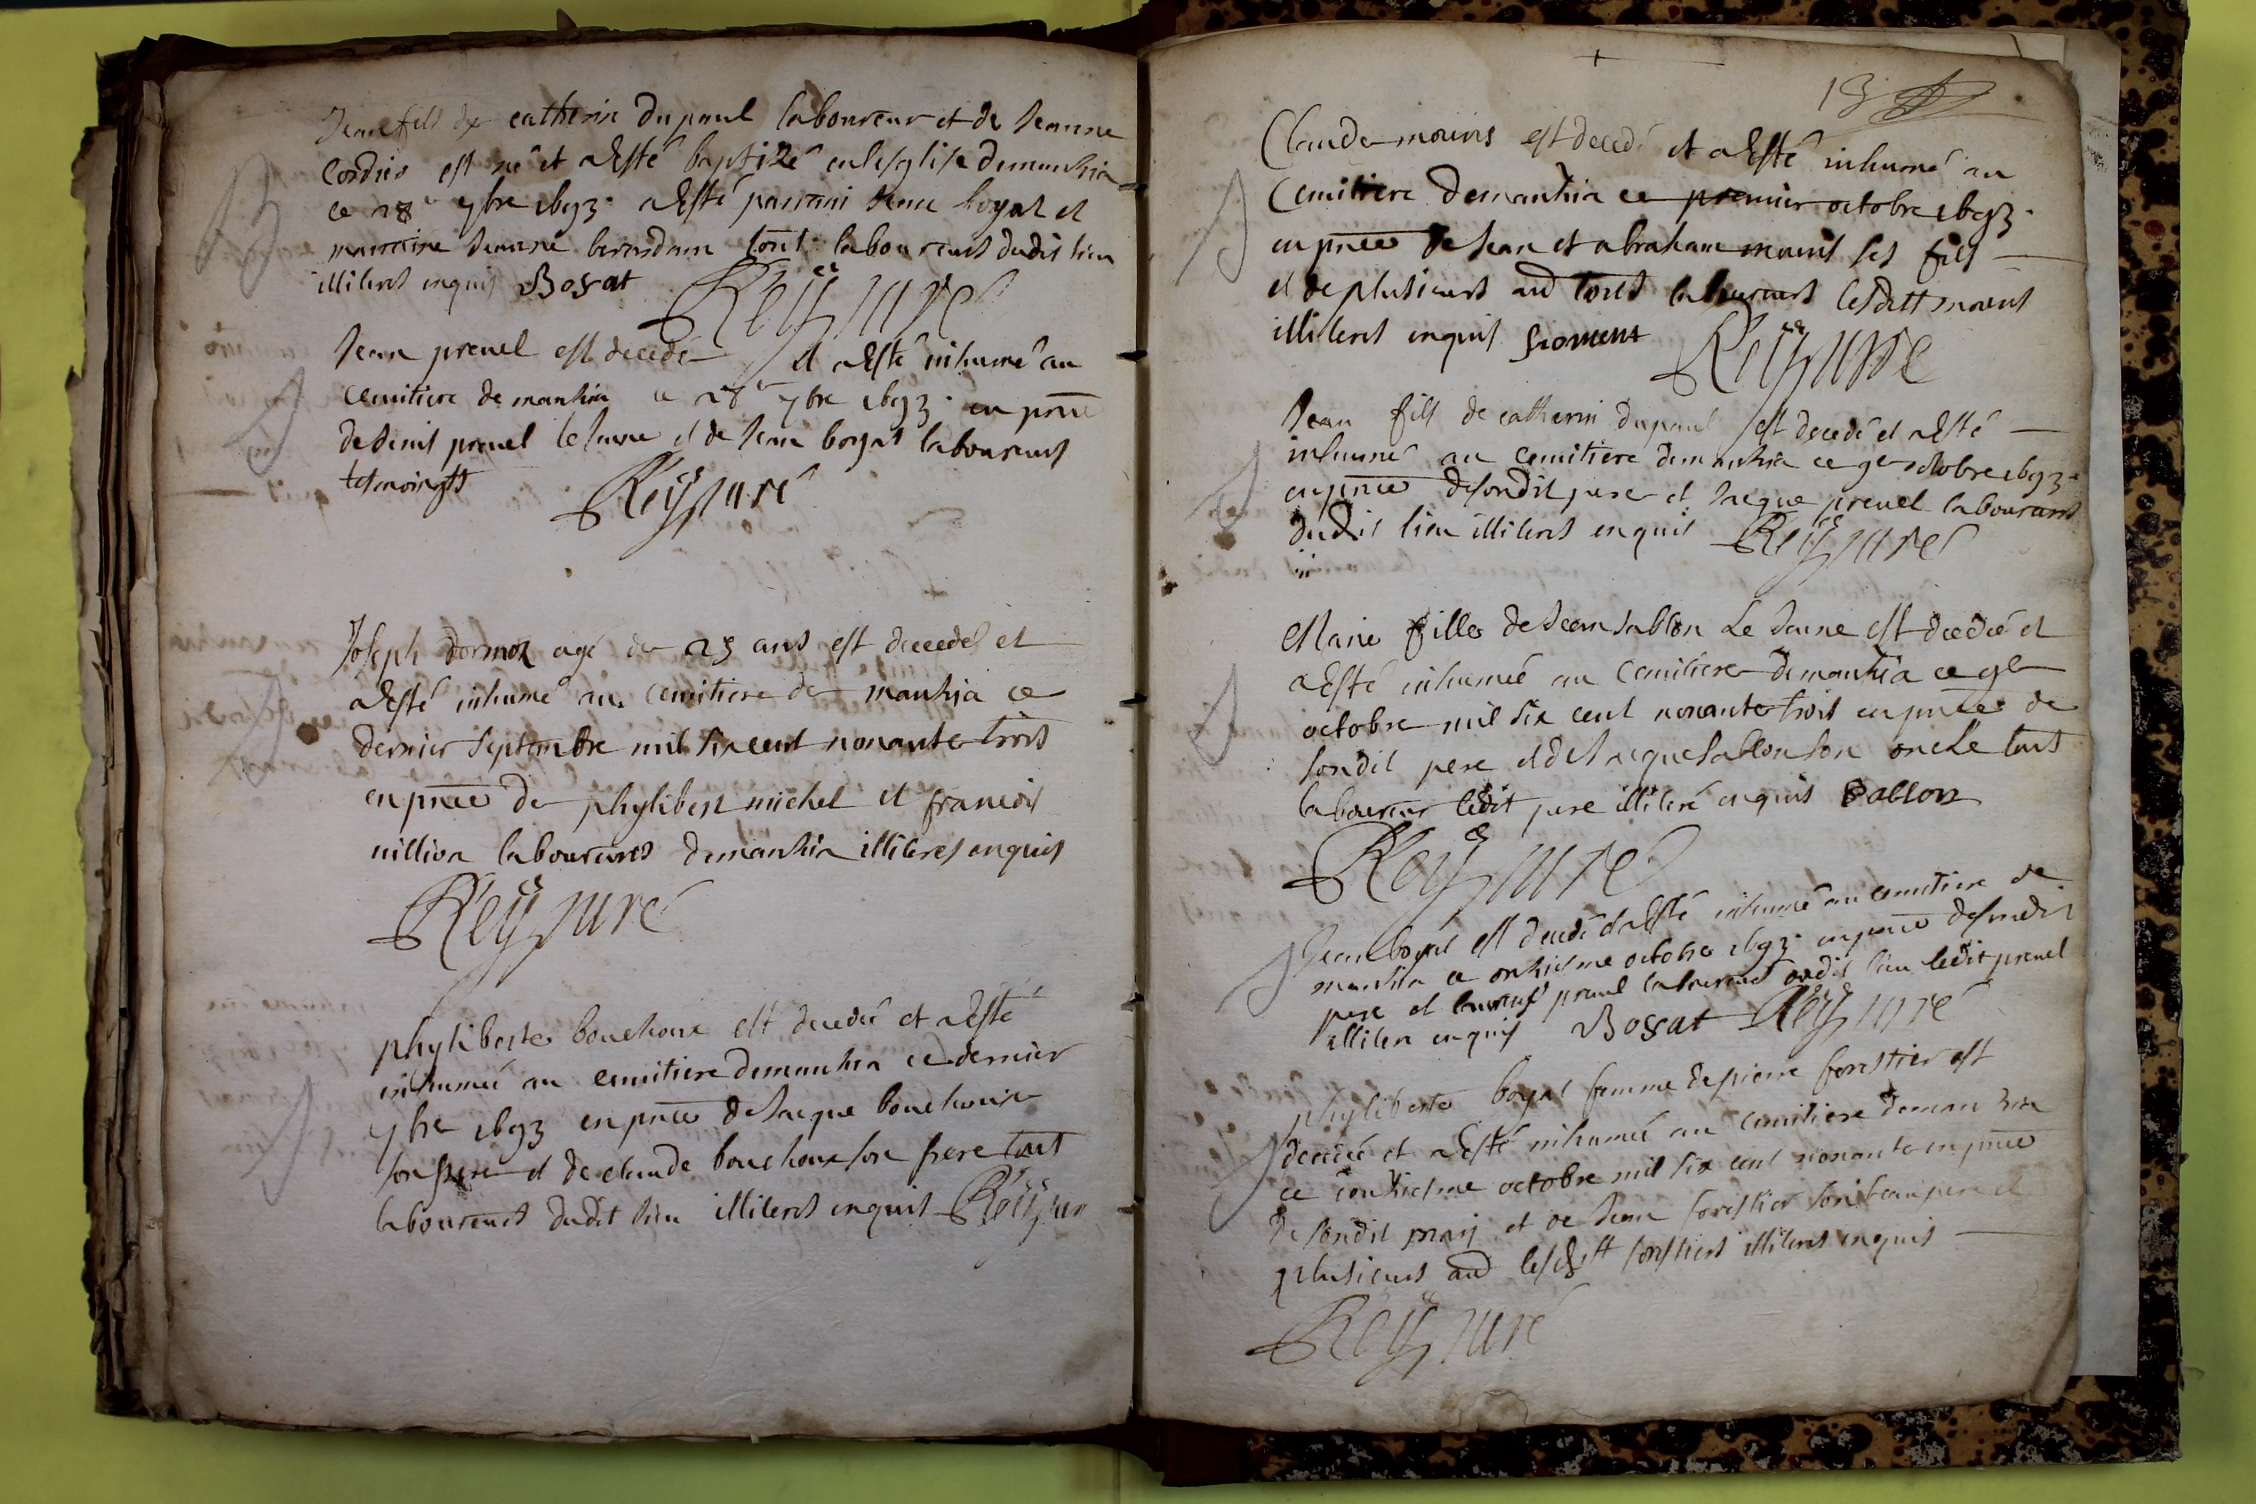 Jean fils de catherin dupaul laboureur et de Jeanne
Cordier est né et a Esté baptizé en lesglise demanhia
ce 28e 7bre 1693. a Esté parrain Jean boyat et
marraine Jeanne tous laboureurs dudit lieu
illiterés enquis Boyat Reÿ curé
Jean pruel est decedé et a Esté inhumé au
cemitiere de manhia ce 28e 7bre 1693. en pnce
de denis pruel le Jeune et de Jean boyat laboureurs
tesmoings Reÿ curé
Joseph dormoz agé de 25 ans est decedé et
a Esté inhumé au cemitiere de manhia ce
dernier Septembre mil six cent nonante trois
en pnce de phylibert michel et francois
million laboureurs demanhia illiteres enquis
Reÿ curé
phyliberte bouchoux est decedée et a Esté
inhumée au cemitiere demanhia ce dernier
7bre 1693 en pnce de Jacque bouchoux
son pere et de claude bouchoux son frere tous
laboureurs dudit lieu illiterés enquis Reÿ cur
13
Claude moiris est decedé et a Esté inhumé au
Cemitiere demanhia ce premier octobre 1693.
en pnce de Jean et abraham moiris ses fils
et de plusieurs aud tous laboureurs lesditt moiris
illiterés enquis Reÿ curé
Jean fils de catherin dupaul est decedé et a Esté
inhumé au cemitiere demanhia ce 9e octobre 1693.
en pnce desondit pere et Jacque pruel laboureurs
dudit lieu illiterés enquis Reÿ curé
Marie fille de Jean sablon Le Jeune est decedée et
a Esté inhumée au cemitiere demanhia ce 9e
octobre mil six cent nonante trois en pnce de
sondit pere et de Jacque sablon son oncle tous
laboureurs ledit pere illiteré enquis Sablon
Reÿ curé
Jean boyat est decedé et a Esté inhumé au cemitiere de
manhia ce onziesme octobre 1693. en pnce desondit
pere et pruel laboureurs dudit lieu ledit pruel
illiteré enquis Boyat Reÿ curé
phyliberte boyat femme de pierre forestier est
decedée et a Esté inhumée au cemitiere demanhia
ce onziesme octobre mil six cent nonante en pnce
de sondit mary et de Jean forestier son beaupere et
plusieurs aud lesditt forestiers illiterés enquis
Reÿ curé